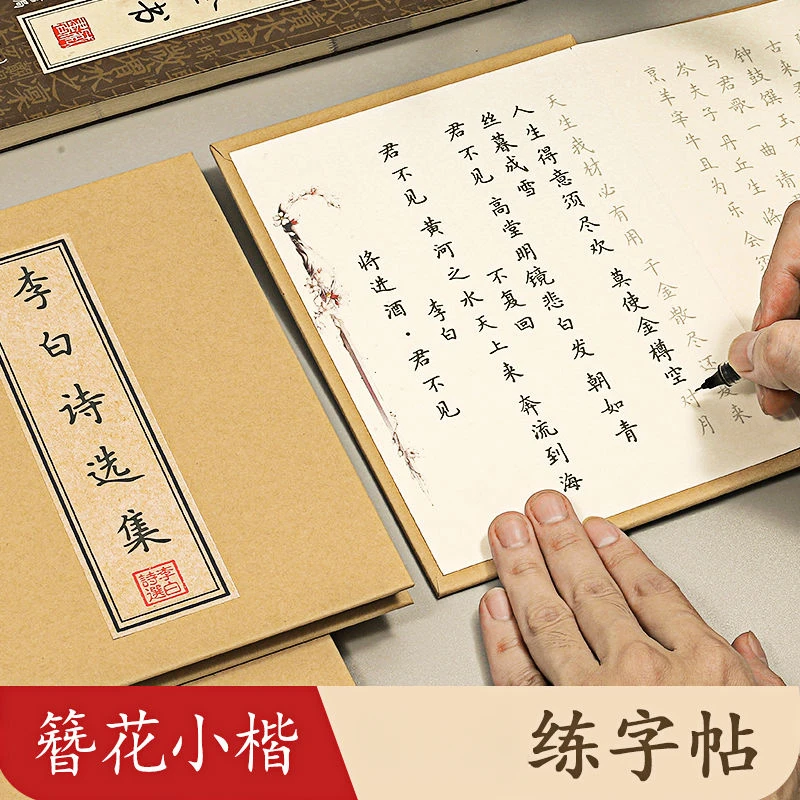 书
李白诗选集
李白
詩選
将进酒·君不见
李白
君不见 黄河之水天上来 奔流到海
不复回
君不见 高堂明镜悲白发 朝如青
丝暮成雪
人生得意须尽欢 莫使金樽空对月
天生我材必有用 千金散尽还复来
烹羊宰牛且为乐 会
岑夫子 丹丘生 将
与君歌一曲 请
钟鼓馔玉不
古来
簪花小楷
练字帖